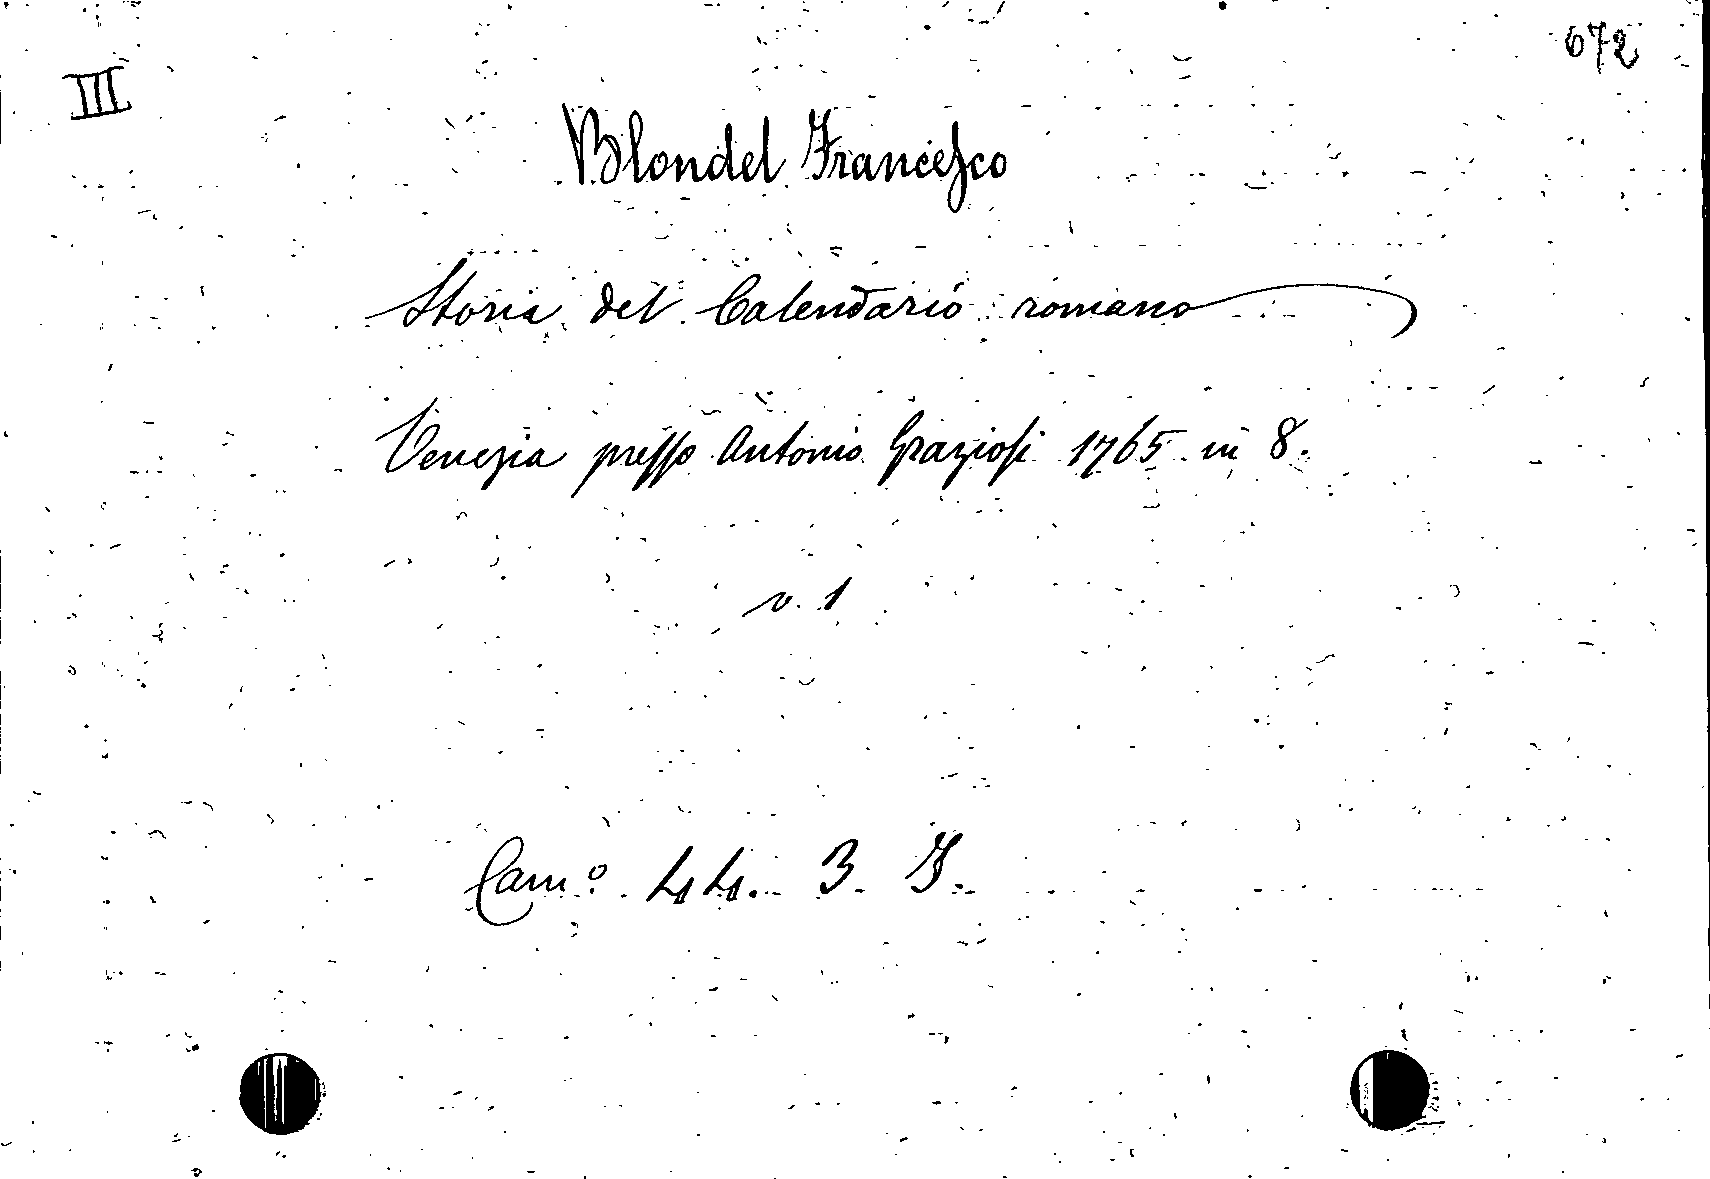 III
672
Blondel Francesco
Storia del Calendario romano
Venezia presso Antonio Graziosi 1765 in 8.
v. 1
Cam.º 44. 3. I.